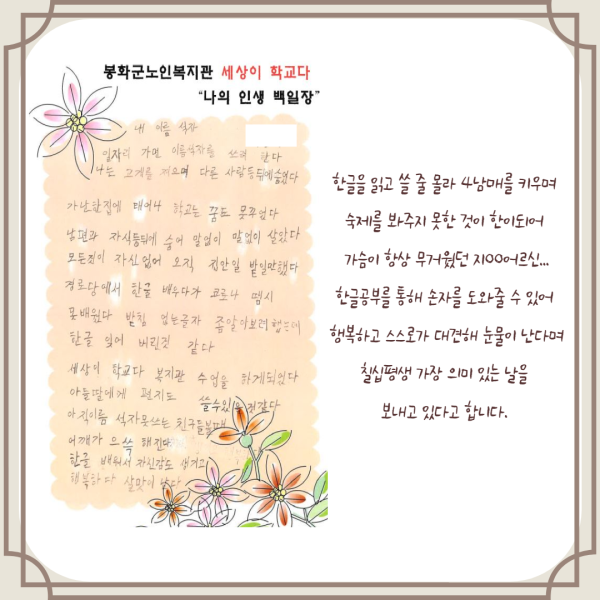 봉화군노인복지관 세상이 학교다
"나의 인생 백일장"
내 이름 석자
일자리 가면 이름석자를 쓰라 한다
나는 고개를 저으며 다른 사람등뒤에숨었다
가난한집에 태어나 학교는 꿈도 못꾸었다
남편과 자식등뒤에 숨어 말없이 말없이 살았다
모든것이 자신없어 오직 집안일 밭일만했다
경로당에서 한글 배우다가 코르나 땜시
못배웠다 받침 없는글자 좀알아보려 했는데
한글 잊어 버린것 같다
세상이 학교다 복지관 수업을 하게되었다
아들딸에게 편지도 쓸수있을것같다
아직이름 석자못쓰는 친구들볼때
어깨가 으쓱 해진다
한글 배워서 자신감도 생기고
행복하다 살맛이 난다
한글을 읽고 쓸 줄 몰라 4남매를 키우며
숙제를 봐주지 못한 것이 한이되어
가슴이 항상 무거웠던 지00어르신...
한글공부를 통해 손자를 도와줄 수 있어
행복하고 스스로가 대견해 눈물이 난다며
칠십평생 가장 의미 있는 날을
보내고 있다고 합니다.